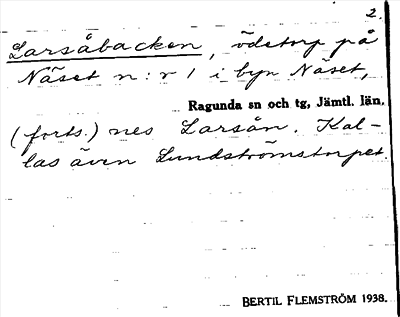 2.
Larsåbacken, ödetorp på
Näset n:r 1 i byn Näset,
Ragunda sn och tg, Jämtl. län.
(forts.) nes Larsån. Kal-
las även Lundströmstorpet.
BERTIL FLEMSTRÖM 1938.